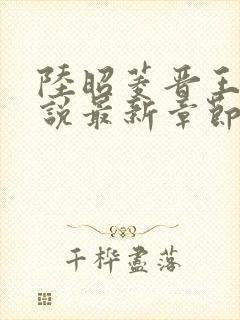 陸昭菱晉王
說最新章節
千樺盡落